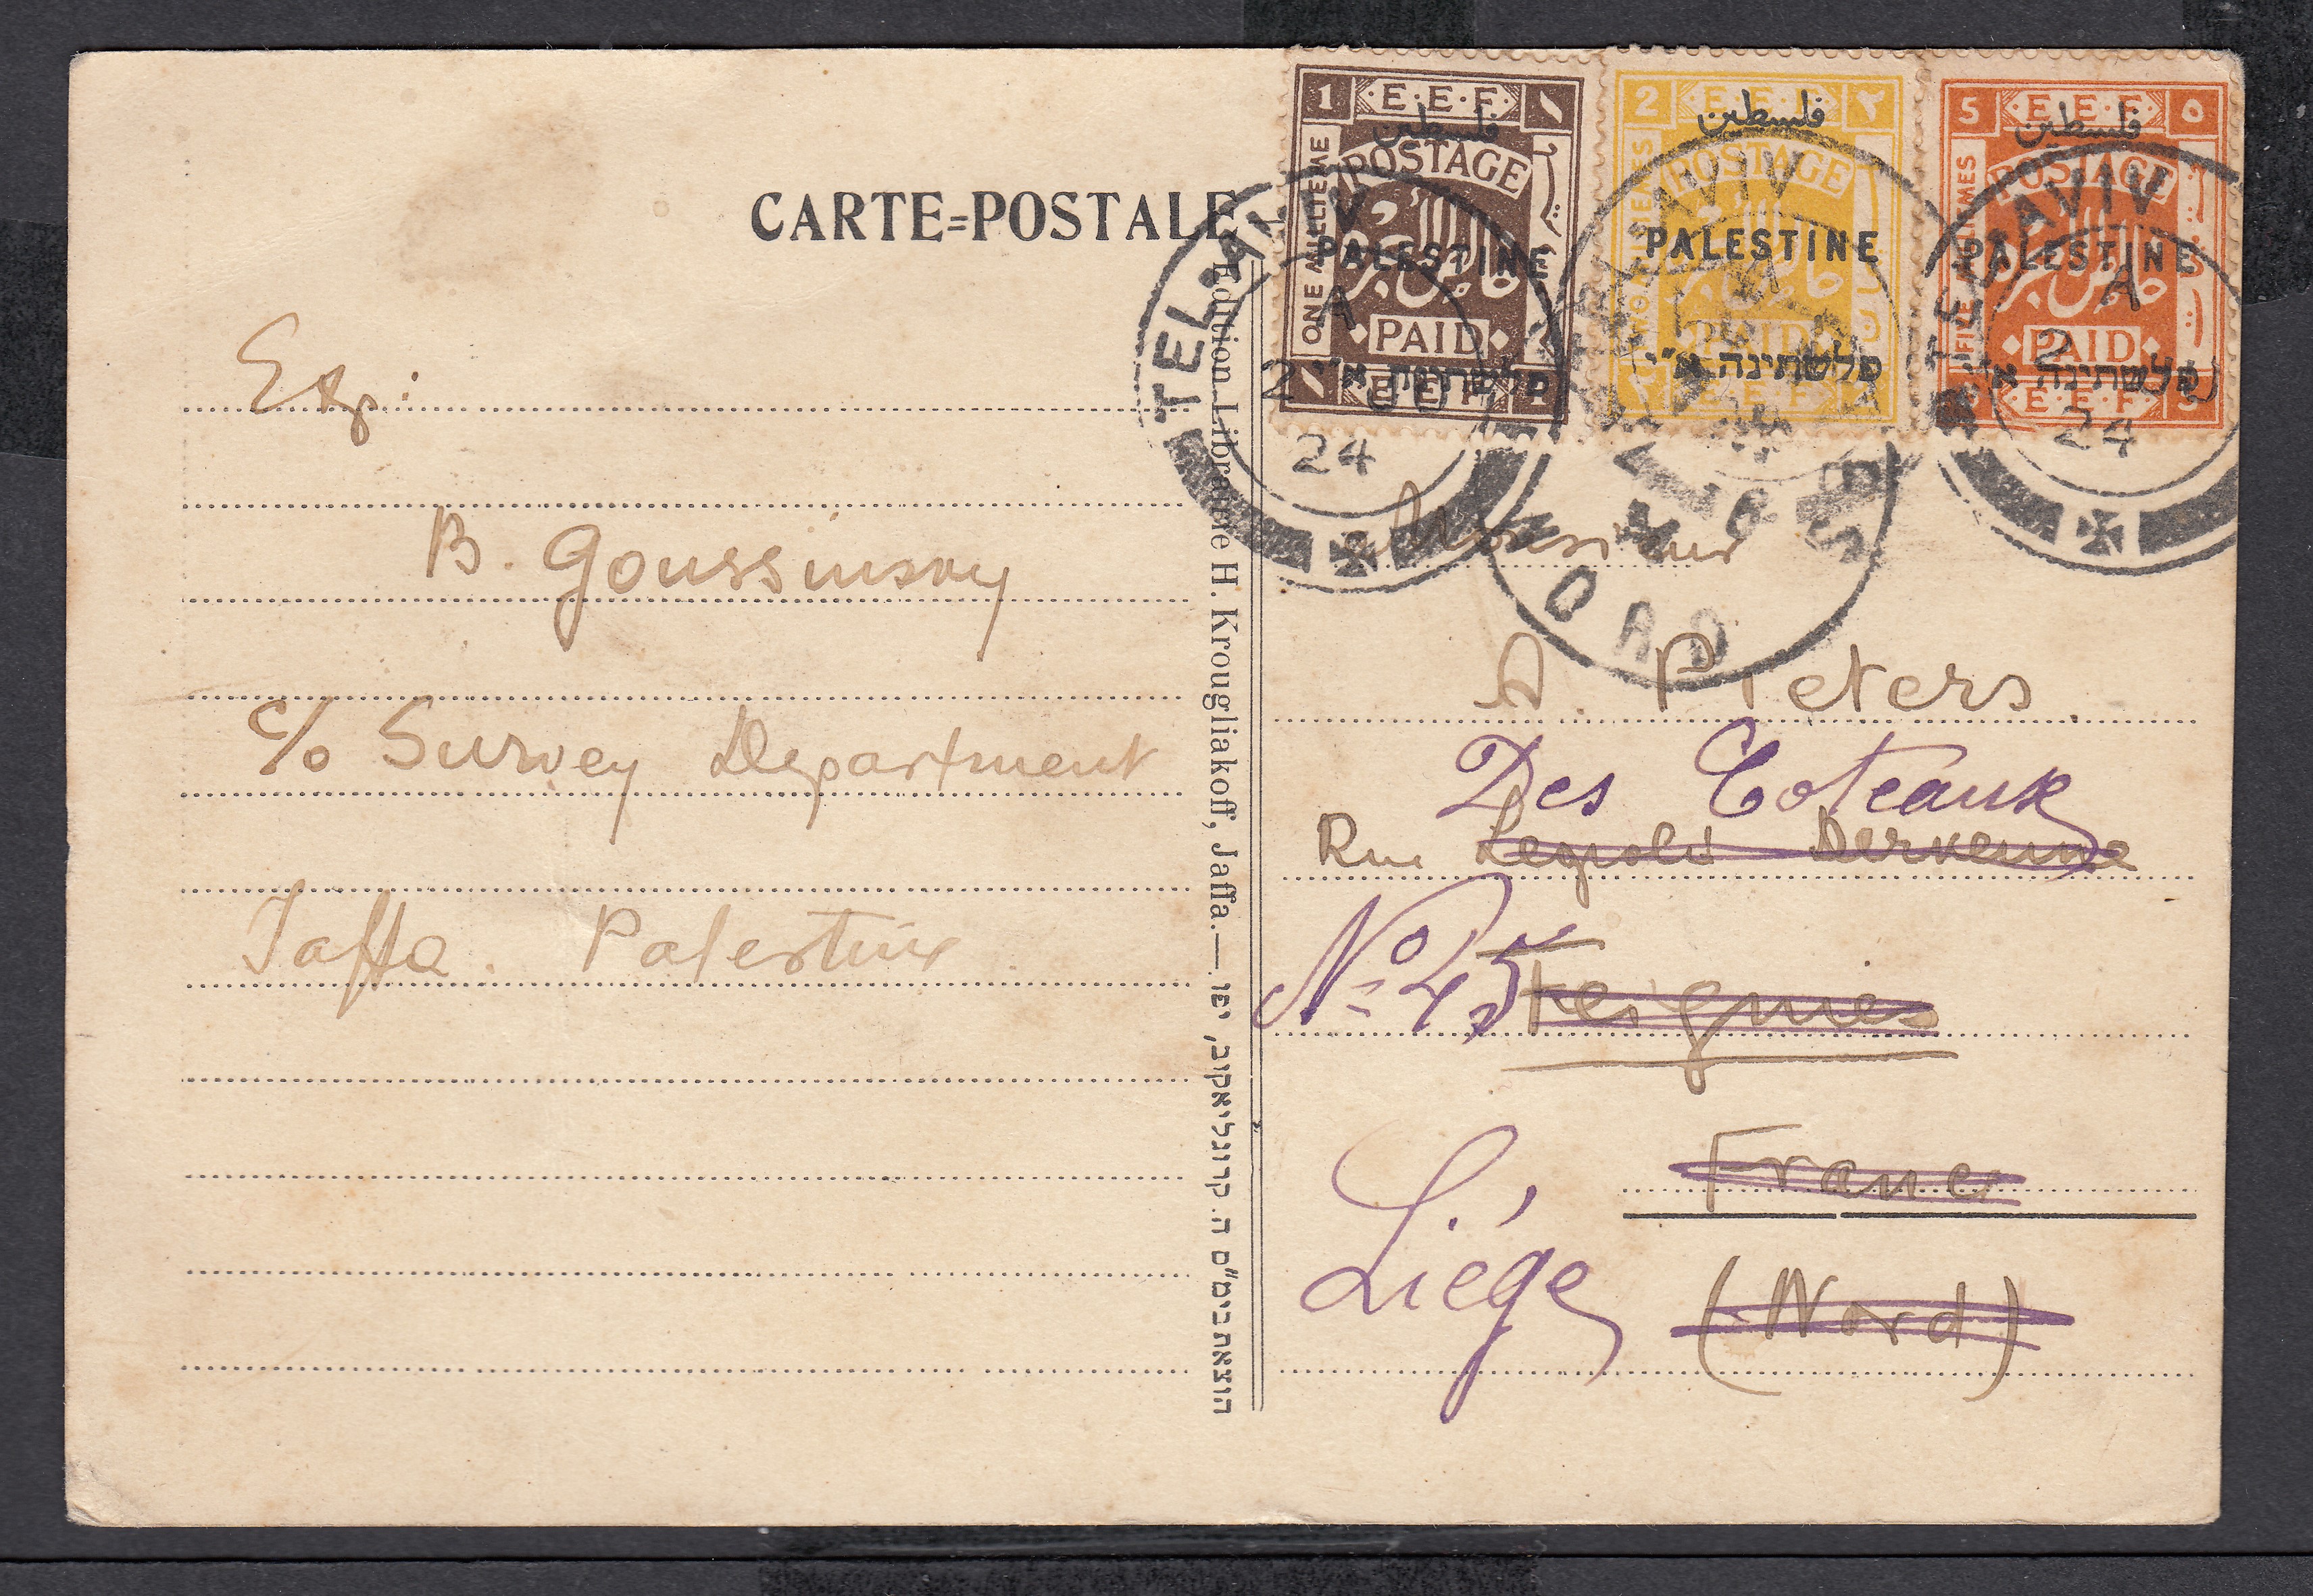 CARTE=POSTALE
Exp:
B. Goussinsky
c/o Survey Department
Jaffa. Palestine
Edition Librairie H. Krougliakoff, Jaffa.— הוצאת בימ"ס ה. קרוגליאקוב, יפו.
1 E.E.F. ١
فلسطين
POSTAGE
ONE MILLIEME
PALESTINE
PAID
פלשתינה א"י
E.E.F.
2 E.E.F. ٢
فلسطين
POSTAGE
PALESTINE
PAID
פלשתינה א"י
E.E.F.
5 E.E.F. ٥
فلسطين
POSTAGE
FIVE MILLIEMES
PALESTINE
PAID
פלשתינה א"י
E.E.F. 5
TEL-AVIV
A
2
24
TEL-AVIV
A
TEL-AVIV
A
2
24
Monsieur
A. Pieters
Des Coteaux
Rue Leopold
No 45 Feignies
France
Liége (Nord)